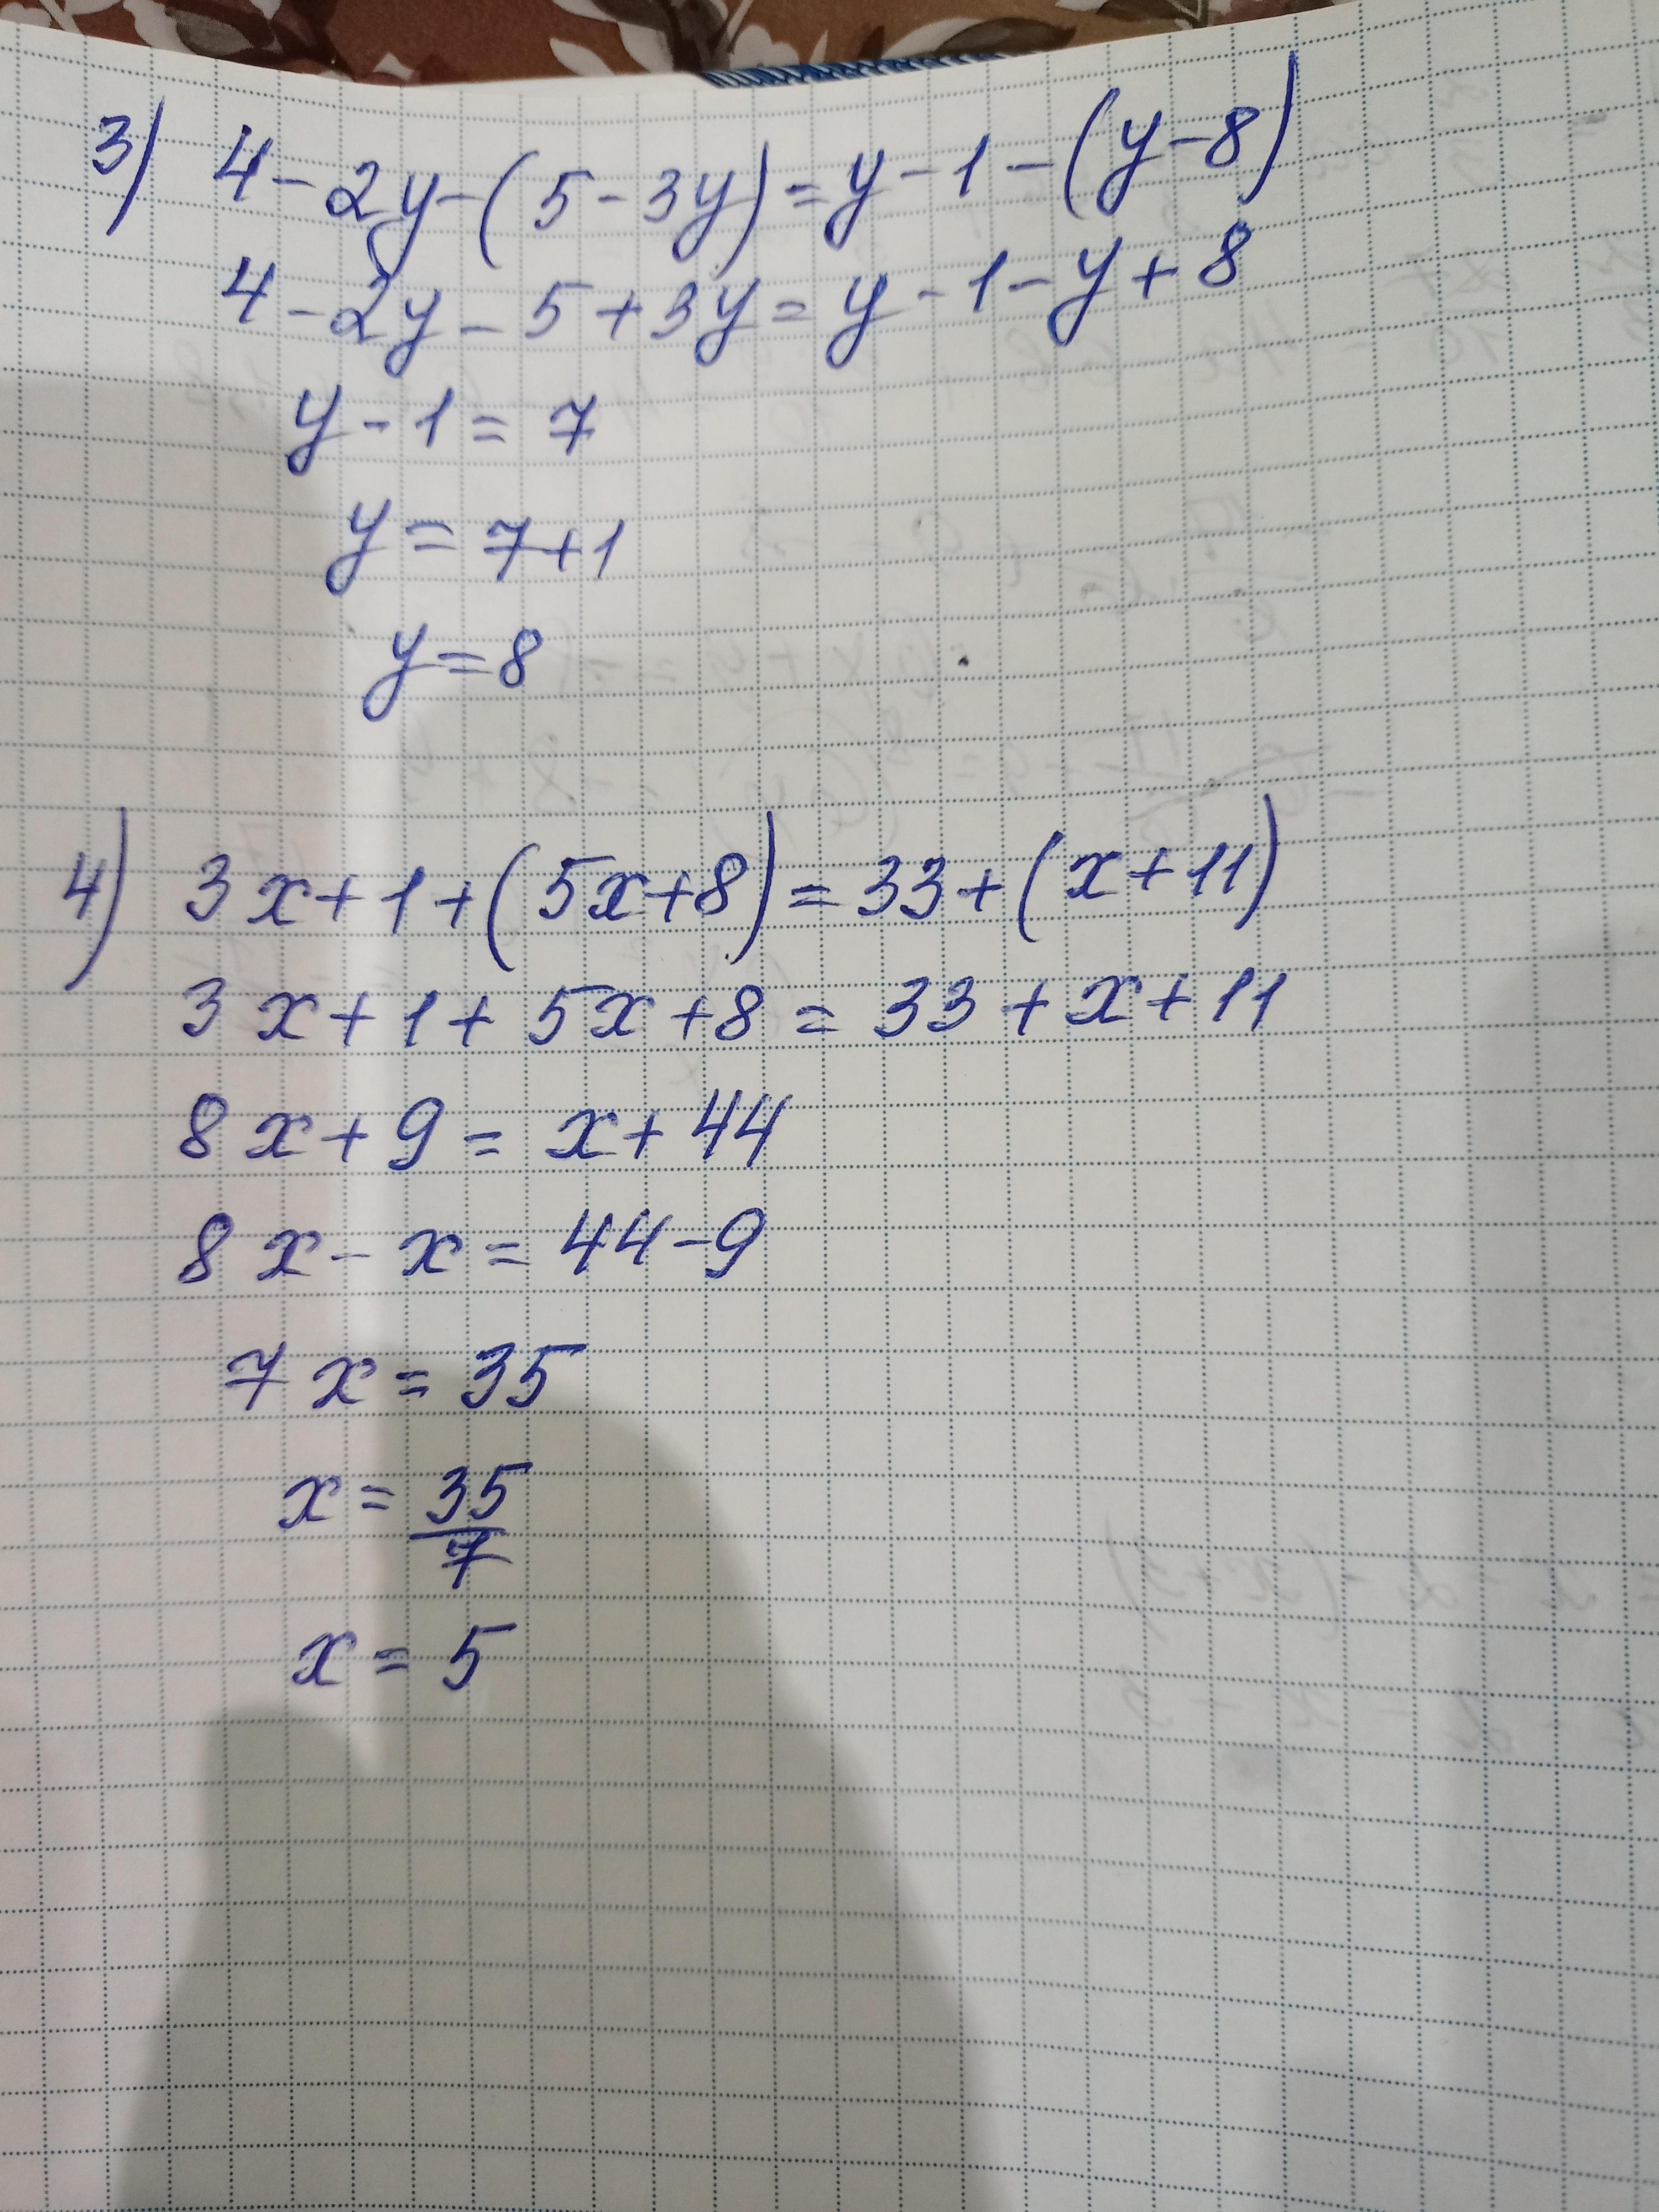 3) 4 - 2y - (5 - 3y) = y - 1 - (y - 8)
4 - 2y - 5 + 3y = y - 1 - y + 8
y - 1 = 7
y = 7 + 1
y = 8
4) 3x + 1 + (5x + 8) = 33 + (x + 11)
3x + 1 + 5x + 8 = 33 + x + 11
8x + 9 = x + 44
8x - x = 44 - 9
7x = 35
x = 35/7
x = 5